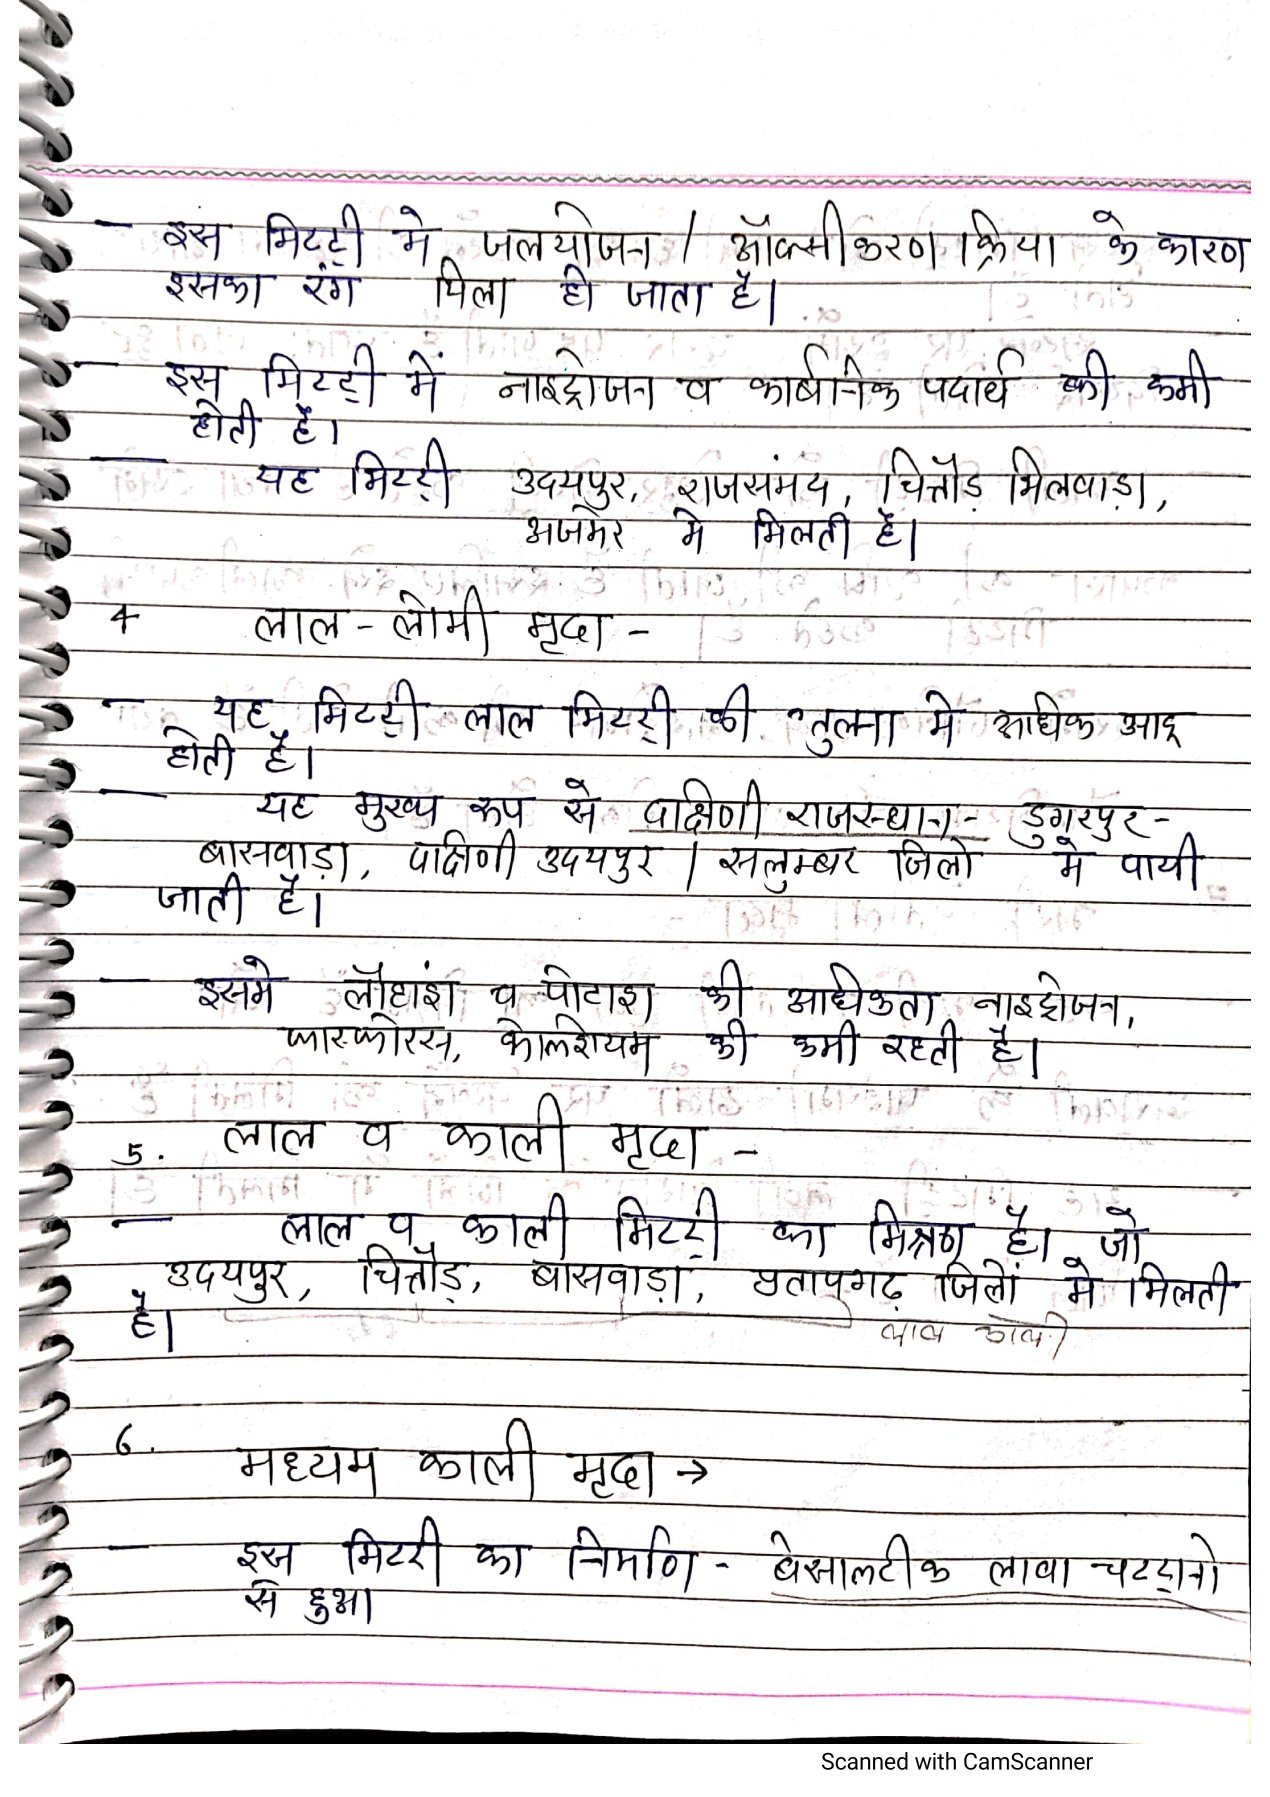 - इस मिटटी मे जलयोजन / ऑक्सीकरण क्रिया के कारण
इसका रंग पिला हो जाता है।
- इस मिटटी में नाइट्रोजन व कार्बनिक पदार्थ की कमी
होती है।
- यह मिटटी उदयपुर, राजसंमद, चित्तौड़ भिलवाड़ा,
अजमेर मे मिलती है।
4 लाल - लोमी मृदा -
- यह मिटटी लाल मिटटी की तुलना मे अधिक आद्र
होती है।
- यह मुख्य रूप से दाक्षिणी राजस्थान - डुगरपुर -
बासवाड़ा, दाक्षिणी उदयपुर / सलुम्बर जिलो मे पायी
जाती है।
- इसमे लौहांश व पोटाश की अधिकता नाइट्रोजन,
फास्फोरस, केल्शियम की कमी रहती है।
5. लाल व काली मृदा -
- लाल व काली मिटटी का मिश्रण है। जो
उदयपुर, चित्तौड़, बांसवाड़ा, प्रतापगढ़ जिलों मे मिलती
है।
लाल काली
6. मध्यम काली मृदा →
- इस मिटटी का निर्माण - बेसाल्टीक लावा चटटानो
से हुआ
Scanned with CamScanner